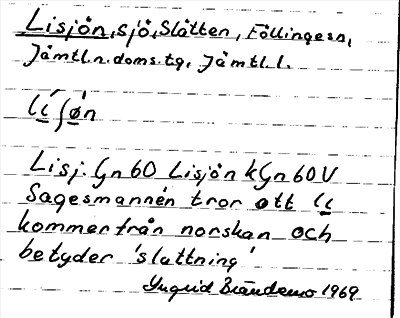 Lisjön, sjö, Slåtten, Föllinge sn,
Jämtl. n. doms. tg, Jämtl. l.
líʃøn
Lisj. Gn 60 Lisjön kGn 60V
Sagesmannen tror att li
kommer från norskan och
betyder 'sluttning'
Ingrid Brändemo 1969